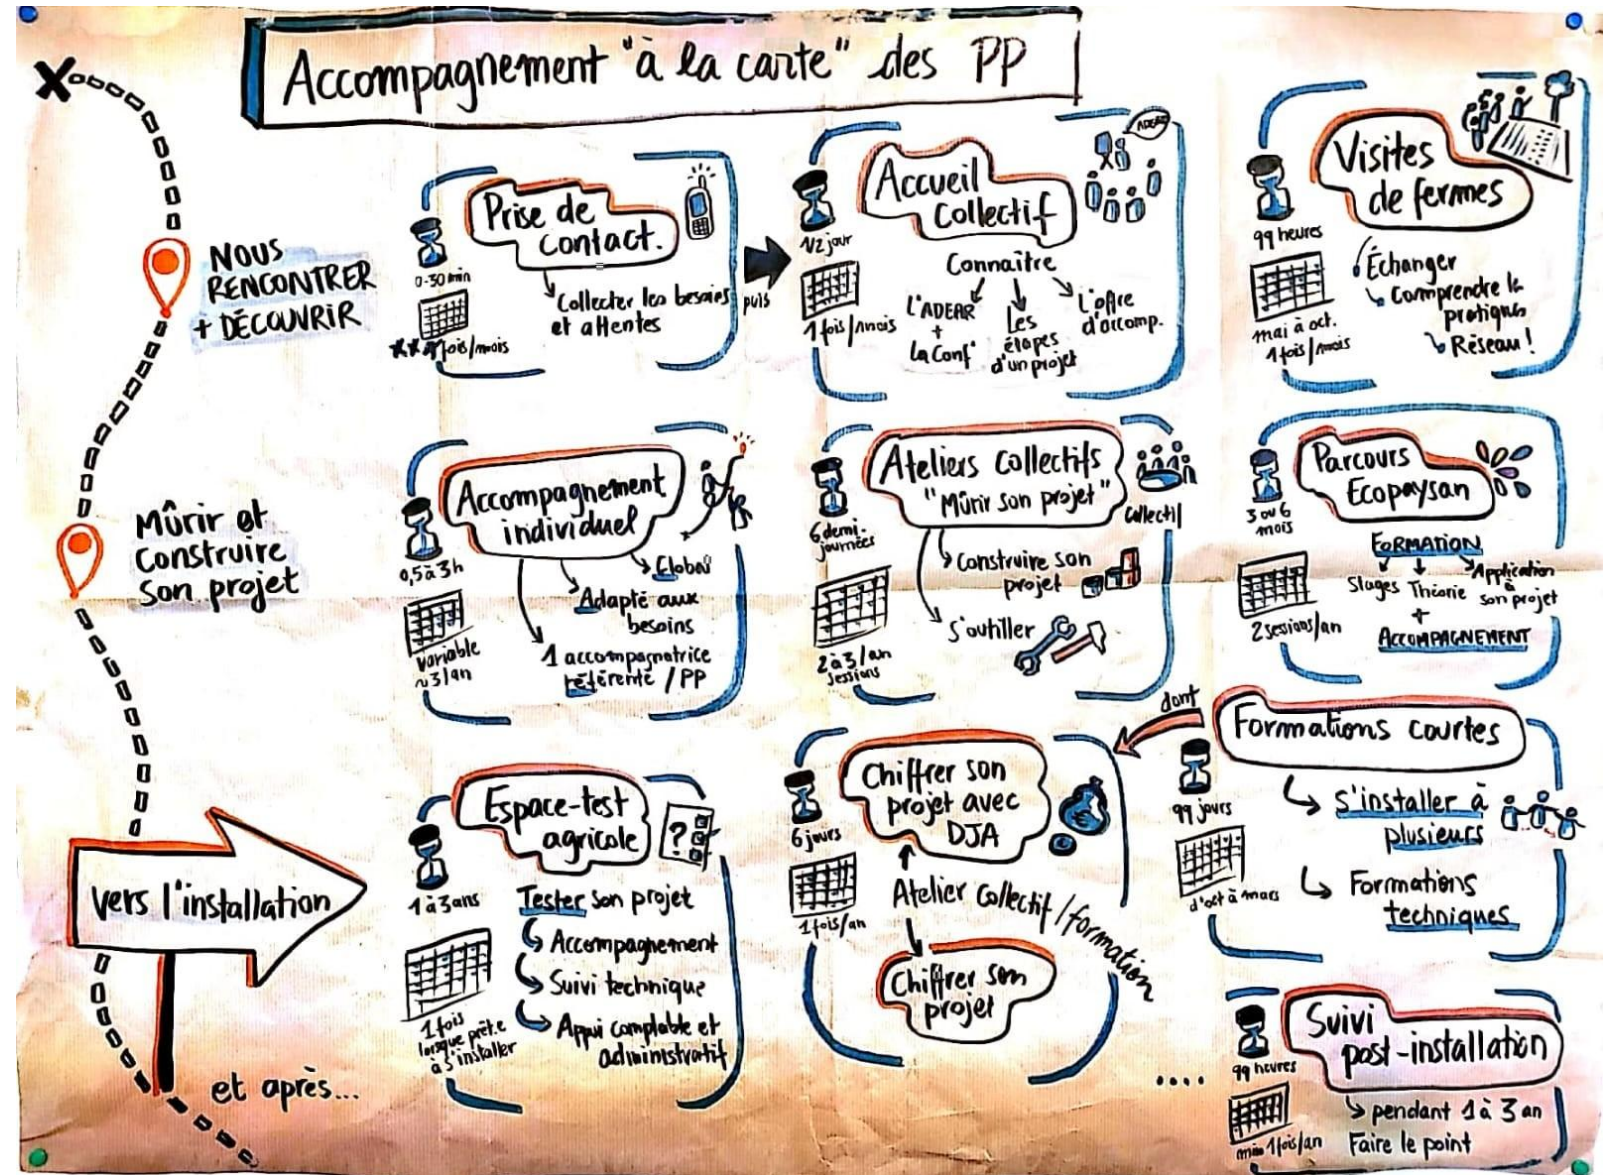 Accompagnement "à la carte" des PP
NOUS
RENCONTRER
+ DÉCOUVRIR
Prise de
contact.
0-30 min
fois/mois
Collecter les besoins
et attentes
puis
Accueil
Collectif
ADEAR
1/2 jour
1 fois/mois
Connaître
L'ADEAR
+
la Conf'
Les
étapes
d'un projet
L'offre
d'accomp.
Visites
de fermes
99 heures
mai à oct.
1 fois/mois
Échanger
Comprendre la
pratiques
Réseau !
Mûrir et
Construire
son projet
Accompagnement
individuel
0,5 à 3h
variable
~3/an
Global
Adapté aux
besoins
1 accompagnatrice
référente / PP
Ateliers collectifs
"Mûrir son projet"
Collectif
6 demi-
journées
2 à 3/an
sessions
Construire son
projet
S'outiller
Parcours
Ecopaysan
3 ou 6
mois
2 sessions/an
FORMATION
Stages Théorie Application
à
son projet
+
ACCOMPAGNEMENT
Vers l'installation
Espace-test
agricole
?
1 à 3 ans
1 fois
lorsque prêt.e
à s'installer
Tester son projet
Accompagnement
Suivi technique
Appui comptable et
administratif
Chiffrer son
projet avec
DJA
6 jours
1 fois/an
Atelier Collectif/formation
Chiffrer son
projet
dont
Formations courtes
99 jours
d'oct à mars
S'installer à
plusieurs
Formations
techniques
et après...
....
Suivi
post-installation
99 heures
1 fois/an
pendant 1 à 3 an
Faire le point